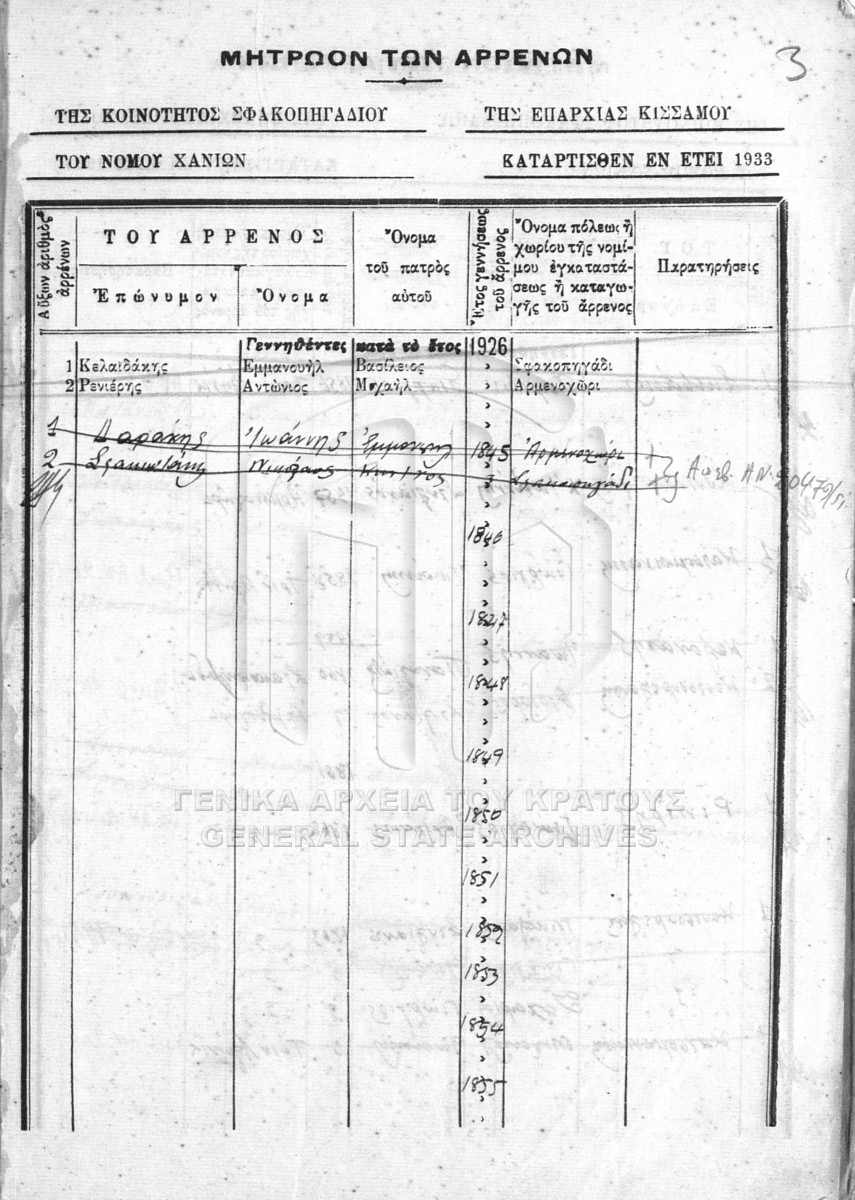 3
ΜΗΤΡΩΟΝ ΤΩΝ ΑΡΡΕΝΩΝ
ΤΗΣ ΚΟΙΝΟΤΗΤΟΣ ΣΦΑΚΟΠΗΓΑΔΙΟΥ ΤΗΣ ΕΠΑΡΧΙΑΣ ΚΙΣΣΑΜΟΥ
ΤΟΥ ΝΟΜΟΥ ΧΑΝΙΩΝ ΚΑΤΑΡΤΙΣΘΕΝ ΕΝ ΕΤΕΙ 1933
Αὔξων ἀριθμὸς ἀρρένων
ΤΟΥ ΑΡΡΕΝΟΣ
Ἐπώνυμον Ὄνομα
Ὄνομα
τοῦ πατρὸς
αὐτοῦ
Ἔτος γεννήσεως
τοῦ ἄρρενος
Ὄνομα πόλεως ἢ
χωρίου τῆς νομί-
μου ἐγκαταστά-
σεως ἢ καταγω-
γῆς τοῦ ἄρρενος
Παρατηρήσεις
Γεννηθέντες κατὰ τὸ ἔτος 1926
1 Κελαϊδάκης Ἐμμανουὴλ Βασίλειος » Σφακοπηγάδι
2 Ρενιέρης Ἀντώνιος Μιχαὴλ » Ἀρμενοχῶρι
1 Ἰωάννης 1845 Ἀρμενοχῶρι
2 Σφακοπηγάδι
1846
1847
1848
1849
1850
1851
1852
1853
1854
1855
ΓΕΝΙΚΑ ΑΡΧΕΙΑ ΤΟΥ ΚΡΑΤΟΥΣ
GENERAL STATE ARCHIVES